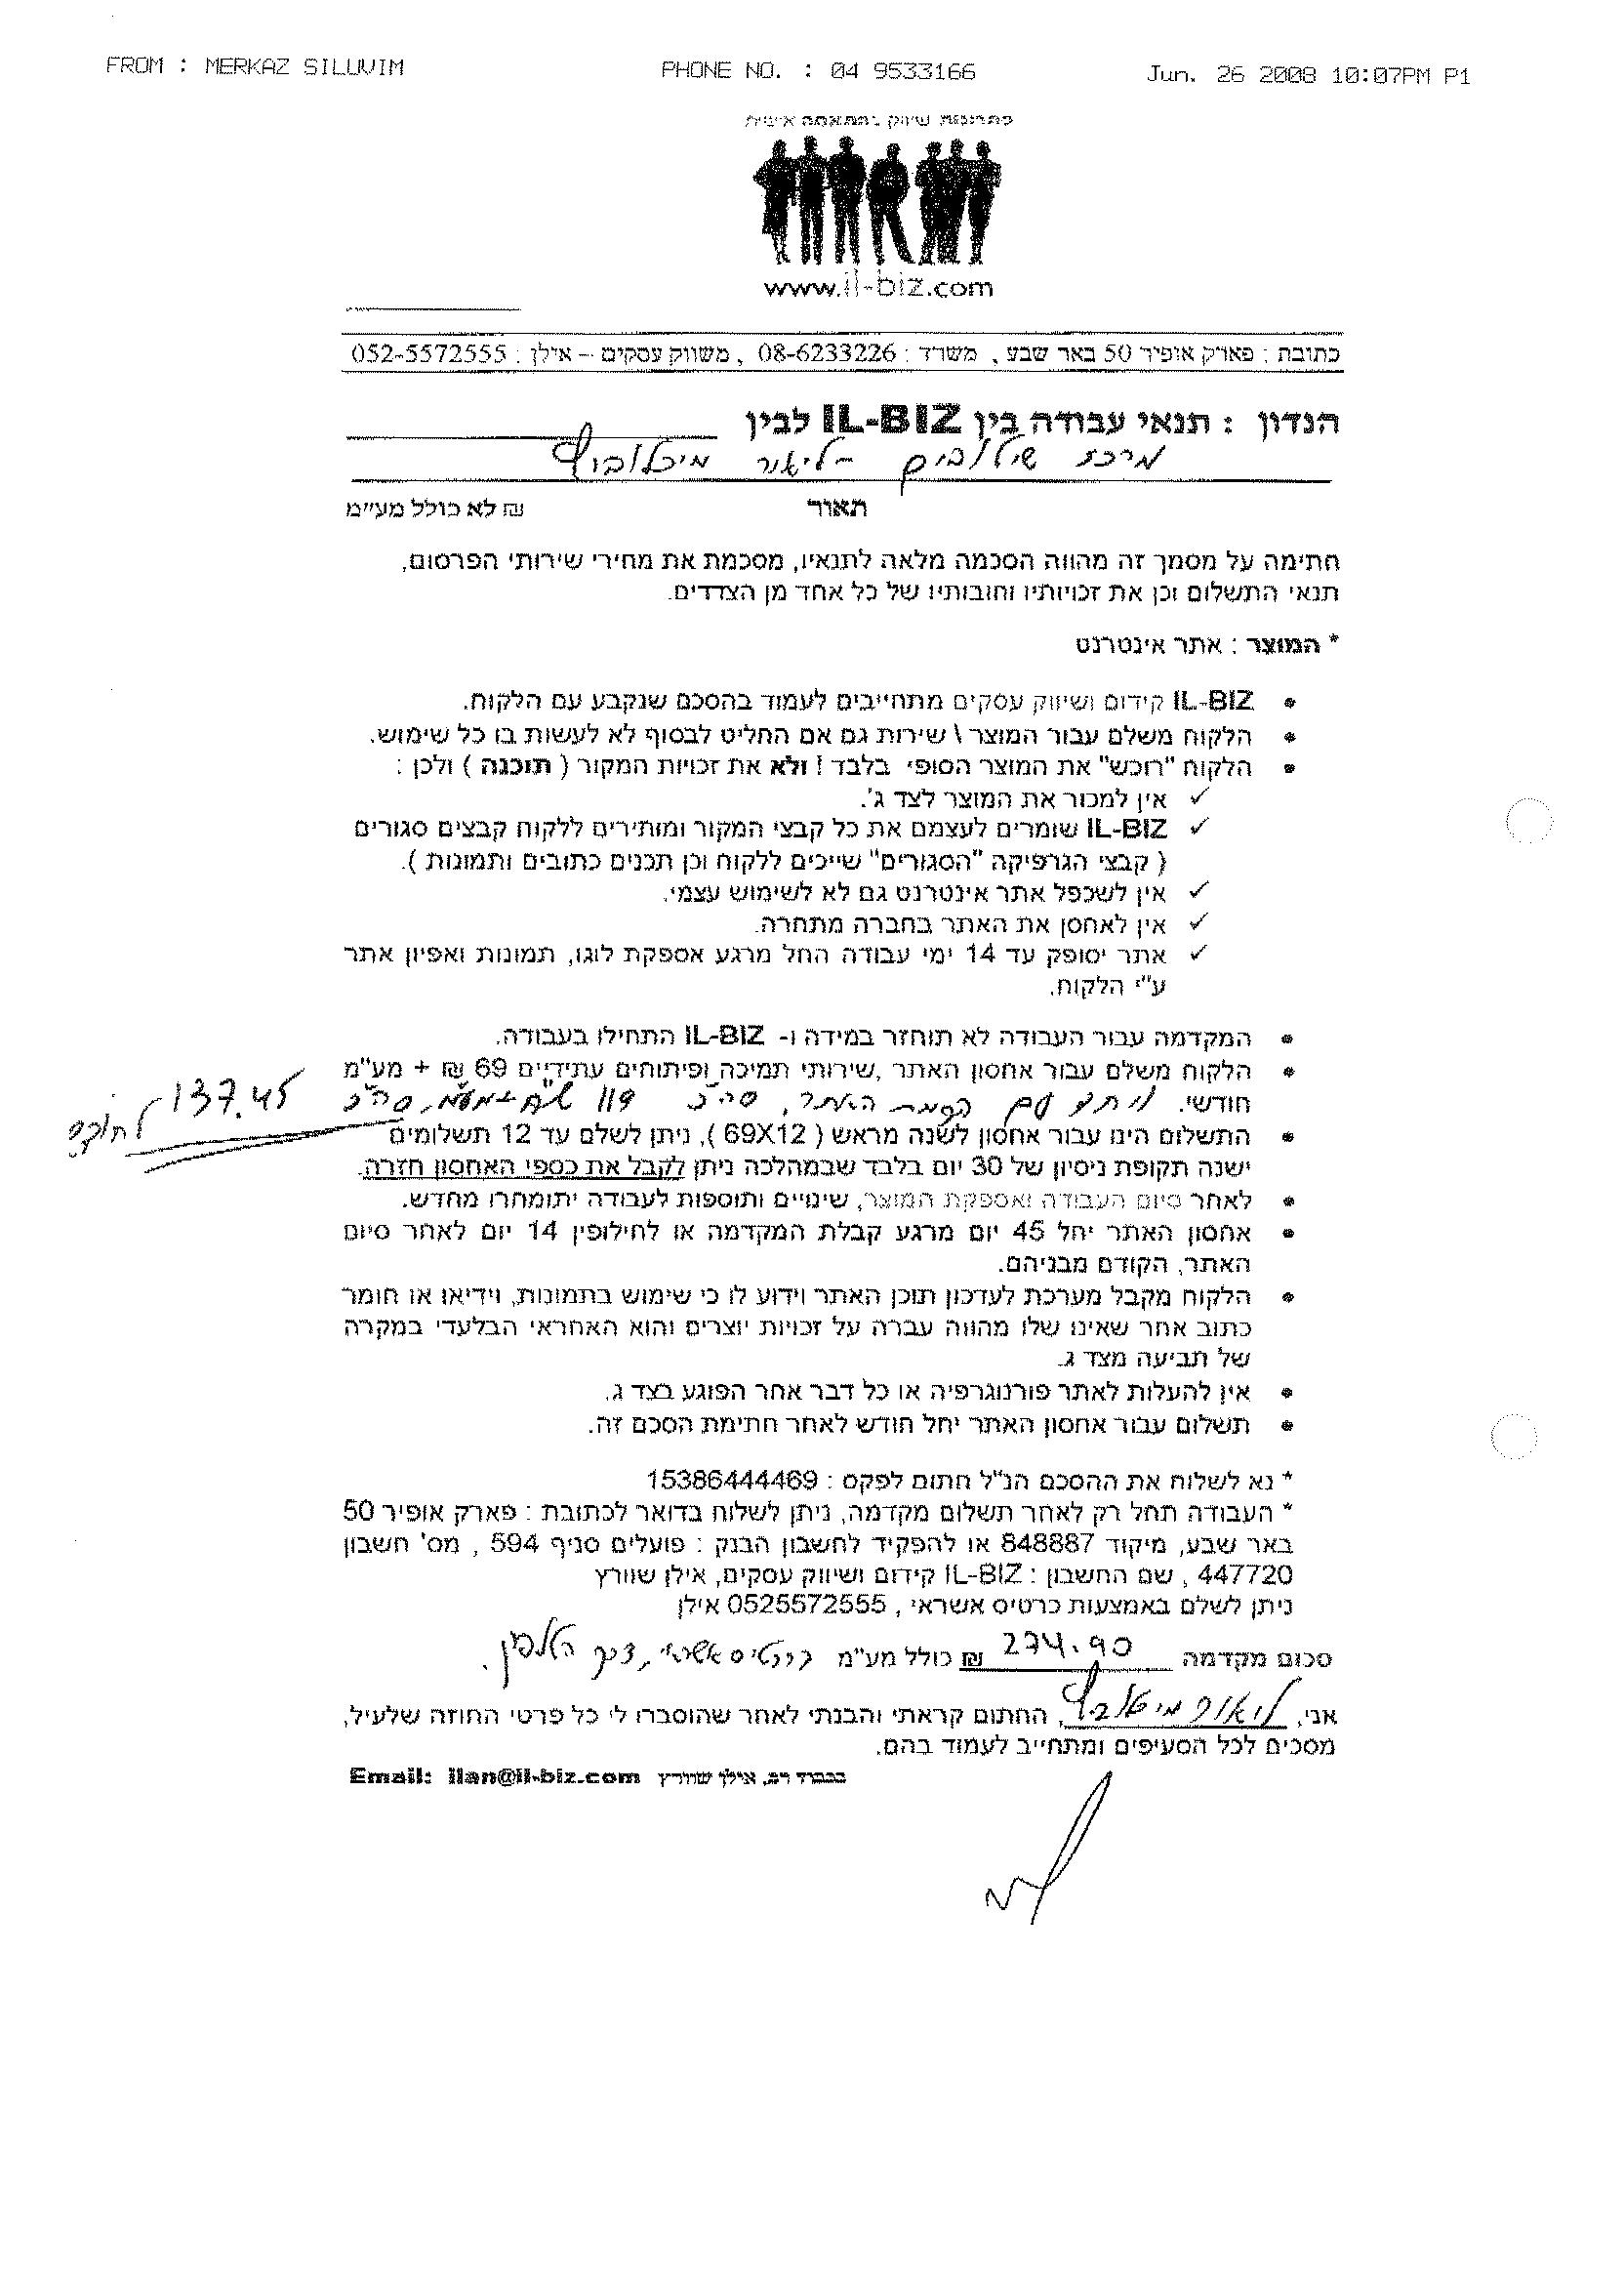 FROM : MERKAZ SILUVIM PHONE NO. : 04 9533166 Jun. 26 2008 10:07PM P1
פתרונות שיווק בהתאמה אישית
www.il-biz.com
כתובת : פארק אופיר 50 באר שבע , משרד : 08-6233226 , משווק עסקים – אילן : 052-5572555
הנדון : תנאי עבודה בין IL-BIZ לבין
מרכז שילובים - ליאור מיכלוביץ
תאור ₪ לא כולל מע״מ
חתימה על מסמך זה מהווה הסכמה מלאה לתנאיו, מסכמת את מחירי שירותי הפרסום,
תנאי התשלום וכן את זכויותיו וחובותיו של כל אחד מן הצדדים.
* המוצר : אתר אינטרנט
• IL-BIZ קידום ושיווק עסקים מתחייבים לעמוד בהסכם שנקבע עם הלקוח.
• הלקוח משלם עבור המוצר \ שירות גם אם החליט לבסוף לא לעשות בו כל שימוש.
• הלקוח "רוכש" את המוצר הסופי בלבד ! ולא את זכויות המקור ( תוכנה ) ולכן :
✓ אין למכור את המוצר לצד ג'.
✓ IL-BIZ שומרים לעצמם את כל קבצי המקור ומותירים ללקוח קבצים סגורים
( קבצי הגרפיקה "הסגורים" שייכים ללקוח וכן תכנים כתובים ותמונות ).
✓ אין לשכפל אתר אינטרנט גם לא לשימוש עצמי.
✓ אין לאחסן את האתר בחברה מתחרה.
✓ אתר יסופק עד 14 ימי עבודה החל מרגע אספקת לוגו, תמונות ואפיון אתר
ע"י הלקוח.
• המקדמה עבור העבודה לא תוחזר במידה ו- IL-BIZ התחילו בעבודה.
• הלקוח משלם עבור אחסון האתר ,שירותי תמיכה ופיתוחים עתידיים 69 ₪ + מע"מ
חודשי. האתר, סה"כ 119 + מע"מ, סה"כ 137.45
• התשלום הינו עבור אחסון לשנה מראש ( 69X12 ), ניתן לשלם עד 12 תשלומים
ישנה תקופת ניסיון של 30 יום בלבד שבמהלכה ניתן לקבל את כספי האחסון חזרה.
• לאחר סיום העבודה ואספקת המוצר, שינויים ותוספות לעבודה יתומחרו מחדש.
• אחסון האתר יחל 45 יום מרגע קבלת המקדמה או לחילופין 14 יום לאחר סיום
האתר, הקודם מבניהם.
• הלקוח מקבל מערכת לעדכון תוכן האתר וידוע לו כי שימוש בתמונות, וידיאו או חומר
כתוב אחר שאינו שלו מהווה עברה על זכויות יוצרים והוא האחראי הבלעדי במקרה
של תביעה מצד ג.
• אין להעלות לאתר פורנוגרפיה או כל דבר אחר הפוגע בצד ג.
• תשלום עבור אחסון האתר יחל חודש לאחר חתימת הסכם זה.
* נא לשלוח את ההסכם הנ"ל חתום לפקס : 15386444469
* העבודה תחל רק לאחר תשלום מקדמה, ניתן לשלוח בדואר לכתובת : פארק אופיר 50
באר שבע, מיקוד 848887 או להפקיד לחשבון הבנק : פועלים סניף 594 , מס' חשבון
447720 , שם החשבון : IL-BIZ קידום ושיווק עסקים, אילן שוורץ
ניתן לשלם באמצעות כרטיס אשראי , 0525572555 אילן
סכום מקדמה 274.90 ₪ כולל מע"מ כרטיס אשראי, דרך הטלפון.
אני, ליאור מיכלוביץ, החתום קראתי והבנתי לאחר שהוסברו לי כל פרטי החוזה שלעיל,
מסכים לכל הסעיפים ומתחייב לעמוד בהם.
בכבוד רב, אילן שוורץ Email: ilan@il-biz.com